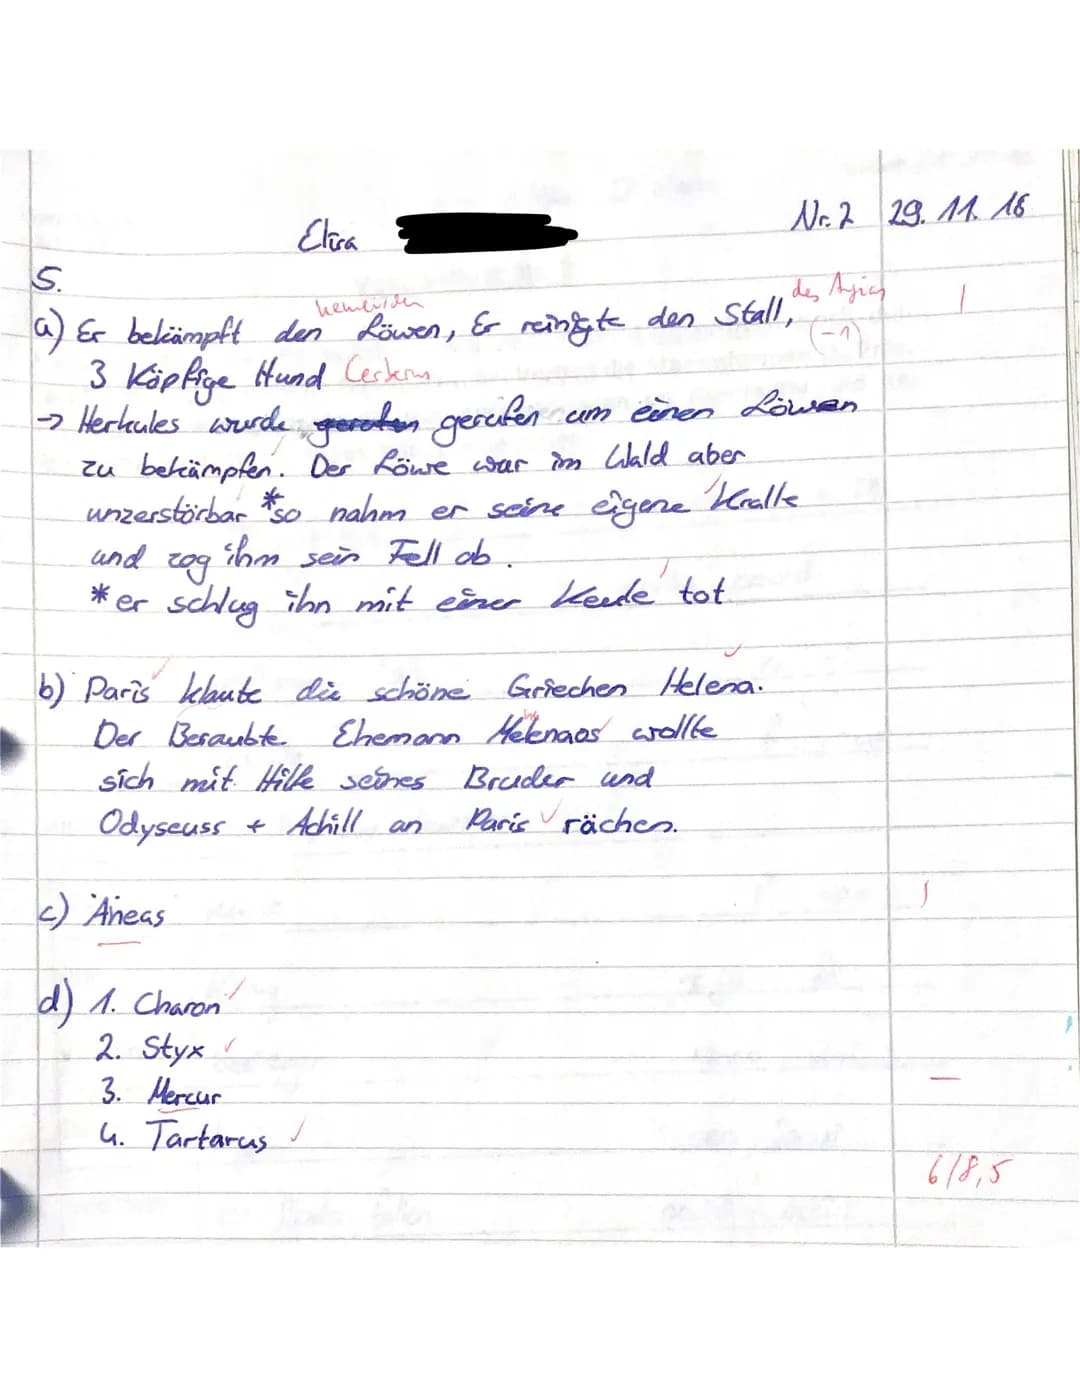 Elira
Nr. 2 29. 11. 16
5.
nemeischen
des Augias
a) Er bekämpft den Löwen, Er reinigte den Stall, (-1) 1
3 Köpfige Hund Cerberus
→ Herkules wurde geroten gerufen um einen Löwen
zu bekämpfen. Der Löwe war im Wald aber
unzerstörbar *so nahm er seine eigene Kralle
und zog ihm sein Fell ab.
*er schlug ihn mit einer Keule tot
b) Paris klaute die schöne Griechen Helena.
Der Beraubte Ehemann Melenaos wollte
sich mit Hilfe seines Bruder und
Odyseuss + Achill an Paris rächen.
c) Äneas
d) 1. Charon
2. Styx
3. Mercur
4. Tartarus
6/8,5